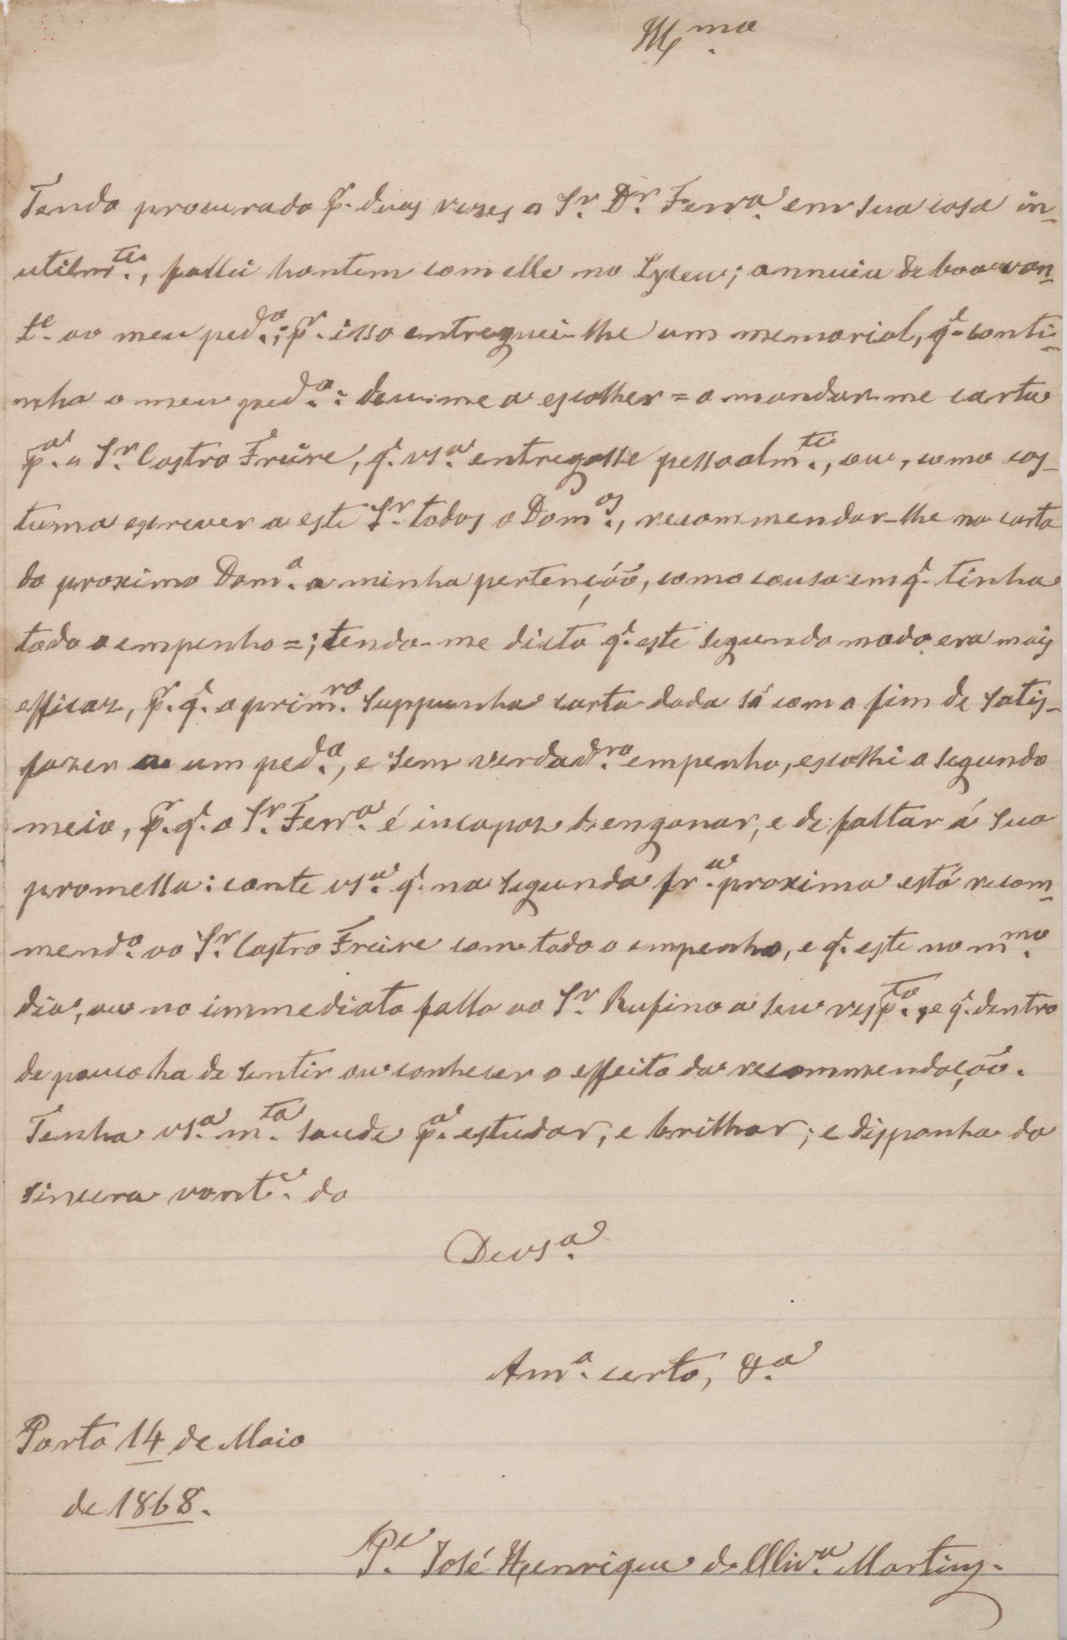 Ill.mo
Tendo procurado p.r duas vezes o Sr. Dr. Ferr.a em sua casa in-
utilm.te, fallei hontem com elle no Lyceu; annuiu de boa von-
t.e ao meu ped.o; p.r isso entreguei-lhe um memorial, q.e conti-
nha o meu ped.o: deu-me a escolher = o mandar-me carta
p.a o Sr. Castro Freire, q.e vs.a entregasse pessoalm.te, ou, como cos-
tuma escrever a este Sr. todos o Dom.os, recommendar-lhe na carta
do proximo Dom.o a minha pertenção, como cousa em q.e tinha
todo o empenho =; tendo-me dicto q.e este segundo modo era mais
efficaz, p.r q.e o prim.ro suppunha carta dada só com o fim de satis-
fazer a um ped.o, e sem verdad.ro empenho, escolhi o segundo
meio, p.r q.e o Sr. Ferr.a é incapaz de enganar, e de faltar á sua
promessa: conte vs.a q.e na segunda fr.a proxima está recom-
mend.o ao Sr. Castro Freire com todo o empenho, e q.e este no m.mo
dia, ou no immediato falla ao Sr. Rufino a seu resp.to, e q.e dentro
de pouco ha de sentir ou conhecer o effeito da recommendação.
Tenha vs.a m.ta saude p.a estudar, e brilhar; e disponha da
sincera vont.e do
De vs.a
Am.o certo, &.a
Porto 14 de Maio
de 1868.
P.e José Henrique de Oliv.a Martins.